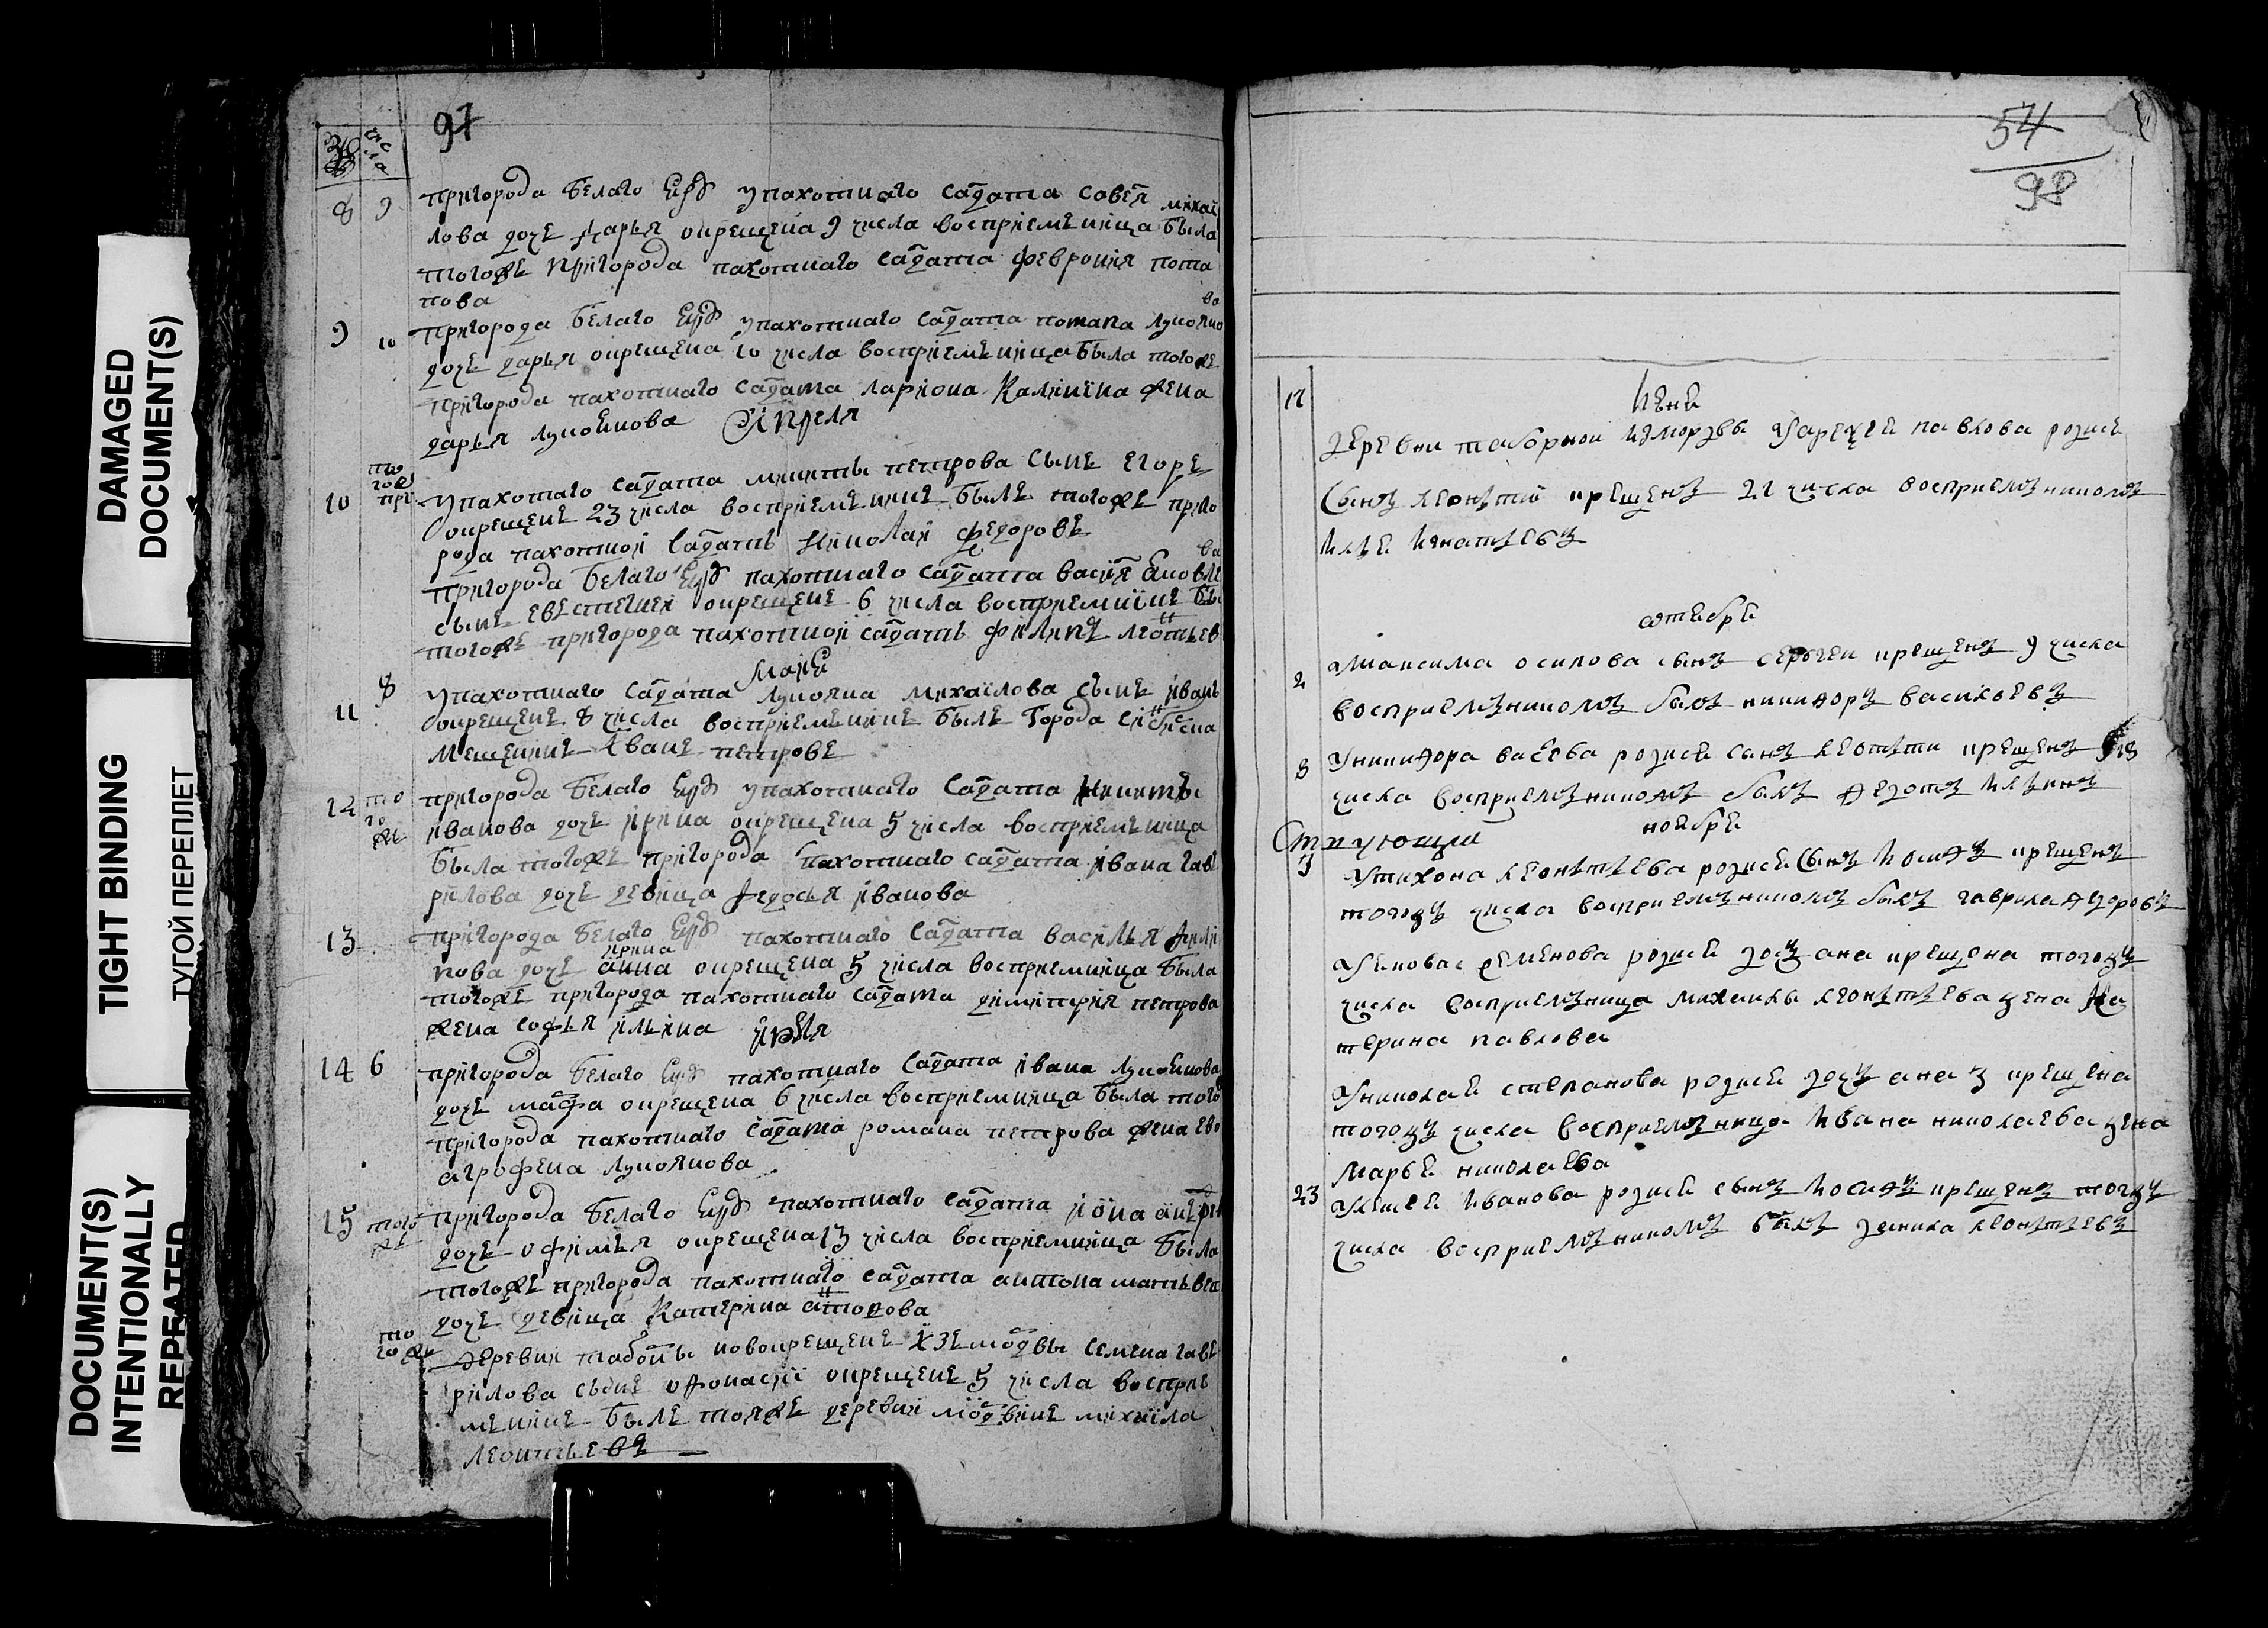 DAMAGED
DOCUMENT(S)
TIGHT BINDING
ТУГОЙ ПЕРЕПЛЕТ
DOCUMENT(S)
INTENTIONALLY
REPEATED
97
числа
8 9 пригорода белаго упахотнаго салдата савел михаи
лова дочь дарья окрещена 9 числа восприемьница была
тогожь пригорода пахотнаго салдата феврония пота
пова
9 10 пригорода белаго упахотнаго салдата потапа лукояно
ва
дочь дарья окрещена 10 числа восприемьница была тогожь
пригорода пахотнаго салдата лариона калинина жена
дарья лукоянова апреля
10 того упахотнаго салдата микиты петрова сынь егорь
окрещень 23 числа восприемьникь быль тогожь приго
рода пахотной салдать николай федоровь
пригорода белаго пахотнаго салдата васил яковле
ва
сынь евьстегней окрещень 6 числа восприемникь бы
тогожь пригорода пахотной салдать филипъ леотьев
маия
11 8 упахотнаго салдата лукояна михаилова сынь ивань
окрещень 8 числа восприемьникь быль города
мещенинь ивань петровь
12 того же пригорода белаго упахотнаго салдата никиты
иванова дочь ирина окрещена 5 числа восприемьница
была тогожь пригорода пахотнаго салдата ивана гав
рилова дочь девица федосья иванова
13 пригорода белаго пахотнаго салдата василья фили
ирина
пова дочь анна окрещена 5 числа восприемница была
тогожь пригорода пахотнаго салдата димитрия петрова
жена софья ильина июля
14 6 пригорода белаго пахотнаго салдата ивана лукоянова
дочь мафа окрещена 6 числа восприемница была того
пригорода пахотнаго салдата романа петрова жена
агрофена лукоянова
15 того же пригорода белаго пахотнаго салдата
дочь офимья окрещена 13 числа восприемница была
тогожь пригорода пахотнаго салдата антона матьвеи
дочь девица катерина атонова
того же деревни табоны новокрещень изь модвы семена гавь
рилова сынь офонасии окрещень 5 числа восприе
мникь быль тояжь деревни модвинь михаила
леонтьевъ
54
98
17 июня
деревни таборной измордвы павлова родися
сынъ леонътий крещенъ 21 числа восприемъникомъ
илья игнатьевъ
октября
2 умаксима осипова сынъ сергеи крещенъ 9 числа
восприемъникомъ былъ никифоръ васильевъ
3 уникифора васева родися сынъ леонтьи крещенъ
числа восприемъникомъ былъ федотъ илъинъ
ноября
3 утихона леонътьева родися сынъ иосифъ крещенъ
тогожъ числа восприемъникомъ былъ гаврила федоровъ
уякова семенова родися дочъ ана крещена тогожъ
числа восприемъница михаилы леонътьева жена ка
терина павлова
униколая степанова родися дочъ ана крещена
тогожъ числа восприемъница ивана николаева жена
марья николаева
23 иванова родися сынъ иосифъ крещенъ тогожъ
числа восприемъникомъ былъ данила леонътьевъ